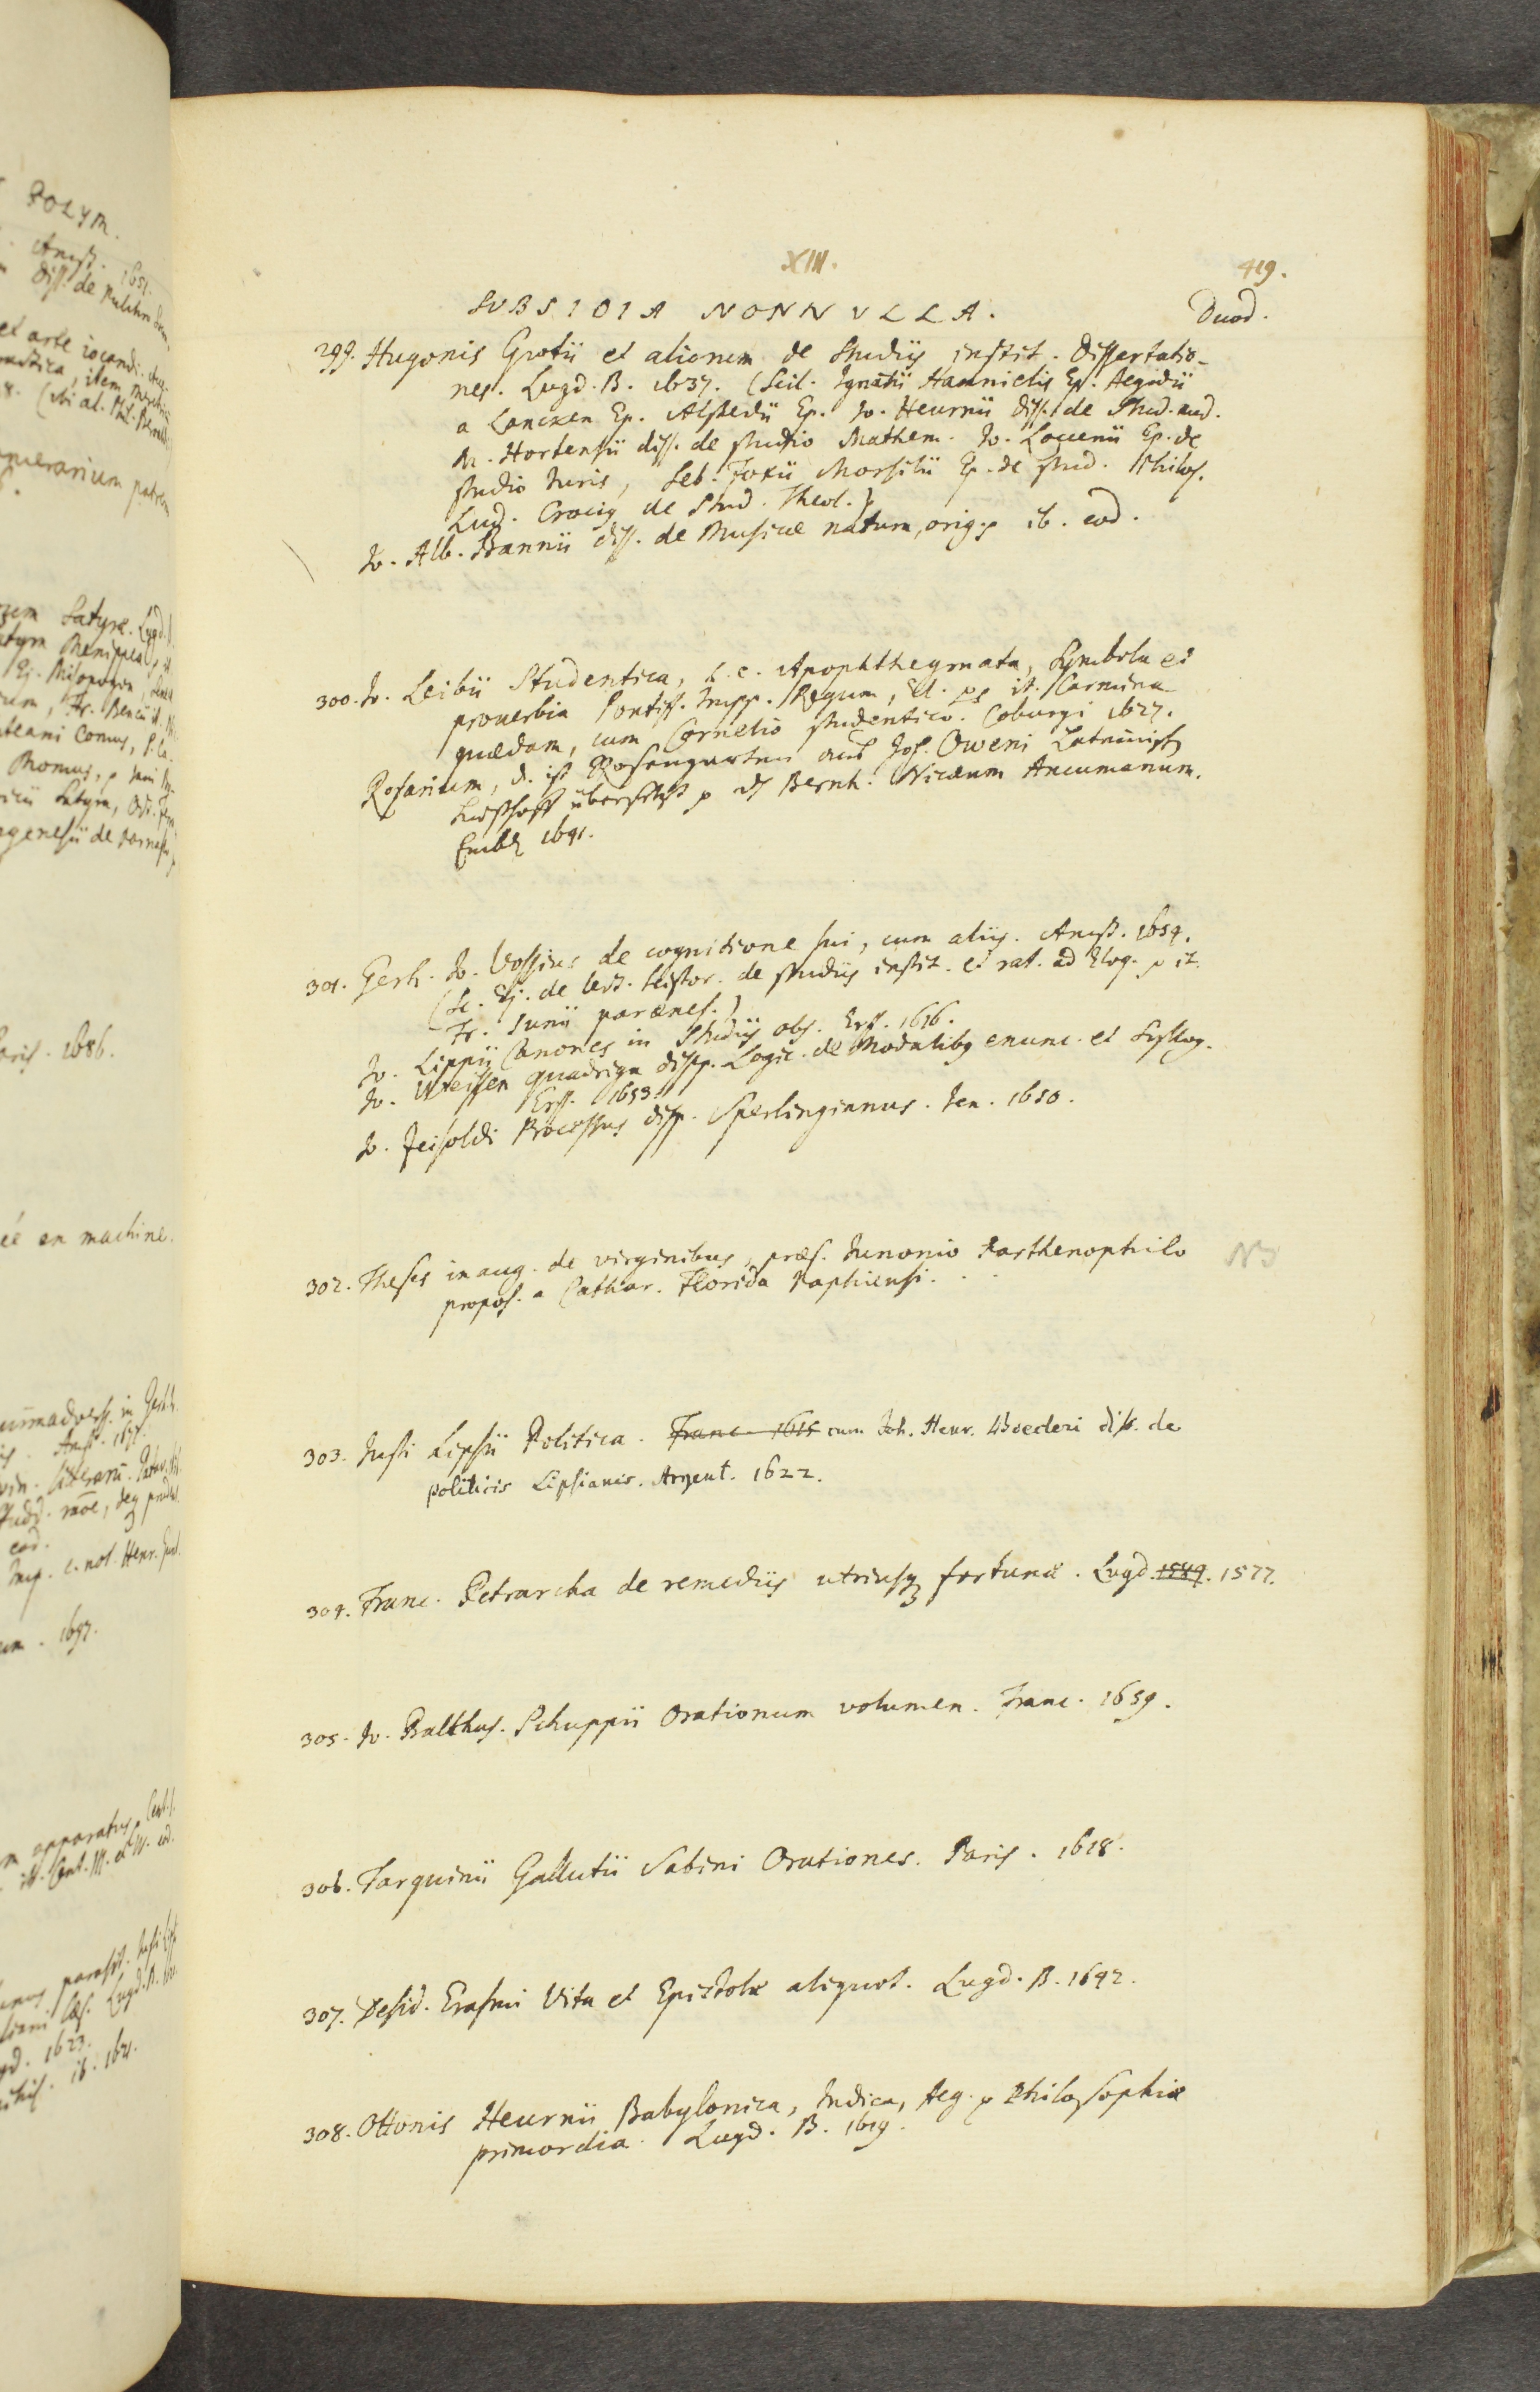 XIII.
419.
SVBSIDIA NONNVLLA.
Duod.
299. Hugonis Grotii et aliorum de Studiis instit. Dissertatio-
nes. Lugd. B. 1637. (Scil. Ignatii Hannielis Ep. Aegidii
a Lancken Ep. Alstedii Ep. Io. Heurnii diss. de Stud. med.
M. Hortensii diss. de studio Mathem. Io. Loccenii Ep. de
studio Iuris, Seb. Foxii Morsilii Ep. de stud. Philos.
Lud. Crocig de Stud. Theol.)
Io. Alb. Bannii diss. de Musicae natura, orig. p ib. eod.
300. Io. Leibii Studentica, h. e. Apophthegmata, Symbola et
prouerbia Pontiff. Impp. Regum, El. it. Carmina
quaedam, cum Cornelio studentico. Coburgi 1627.
Rosarium, d. ist Rosengarten aus Joh. Oweni Lateinisch
übersetzt Bernh. Nicaeum Ancumanum.
Embd 1641.
301. Gerh. Io. Vossius de cognitione sui, cum aliis. Amst. 1654.
(Sc. Ej. de Histor. de studiis instit. et rat. ad Eloq. p it.
Fr. Iunii paraenes.)
Io. Lippii Canones in Studiis obs. Erff. 1616.
Io. Weissen quadriga dispp. Logic. de Modalibq enunc. et Syllog.
Erff. 1653.
Io. Zeisoldi Processus disp. Sperlingianus. Ien. 1650.
302. Theses inaug. de virginibus, praes. Iunonio Parthenophilo
propos. a Cathar. Florida Paphiensi. . .
NB
303. Iusti Lipsii Politica. Franc. 1615 cum Joh. Henr. Boecleri diss. de
politicis Lipsianis. Argent. 1622.
304. Franc. Petrarcha de remediis utriusq fortunae. Lugd. 1584. 1577.
305. Io. Balthas. Schuppii Orationum volumen. Franc. 1659.
306. Tarquinii Gallutii Sabini Orationes. Paris. 1618.
307. Desid. Erasmi Vita et Epistolae aliquot. Lugd. B. 1642.
308. Ottonis Heurnii Babylonica, Indica, Aeg. p Philosophiae
primordia. Lugd. B. 1619.